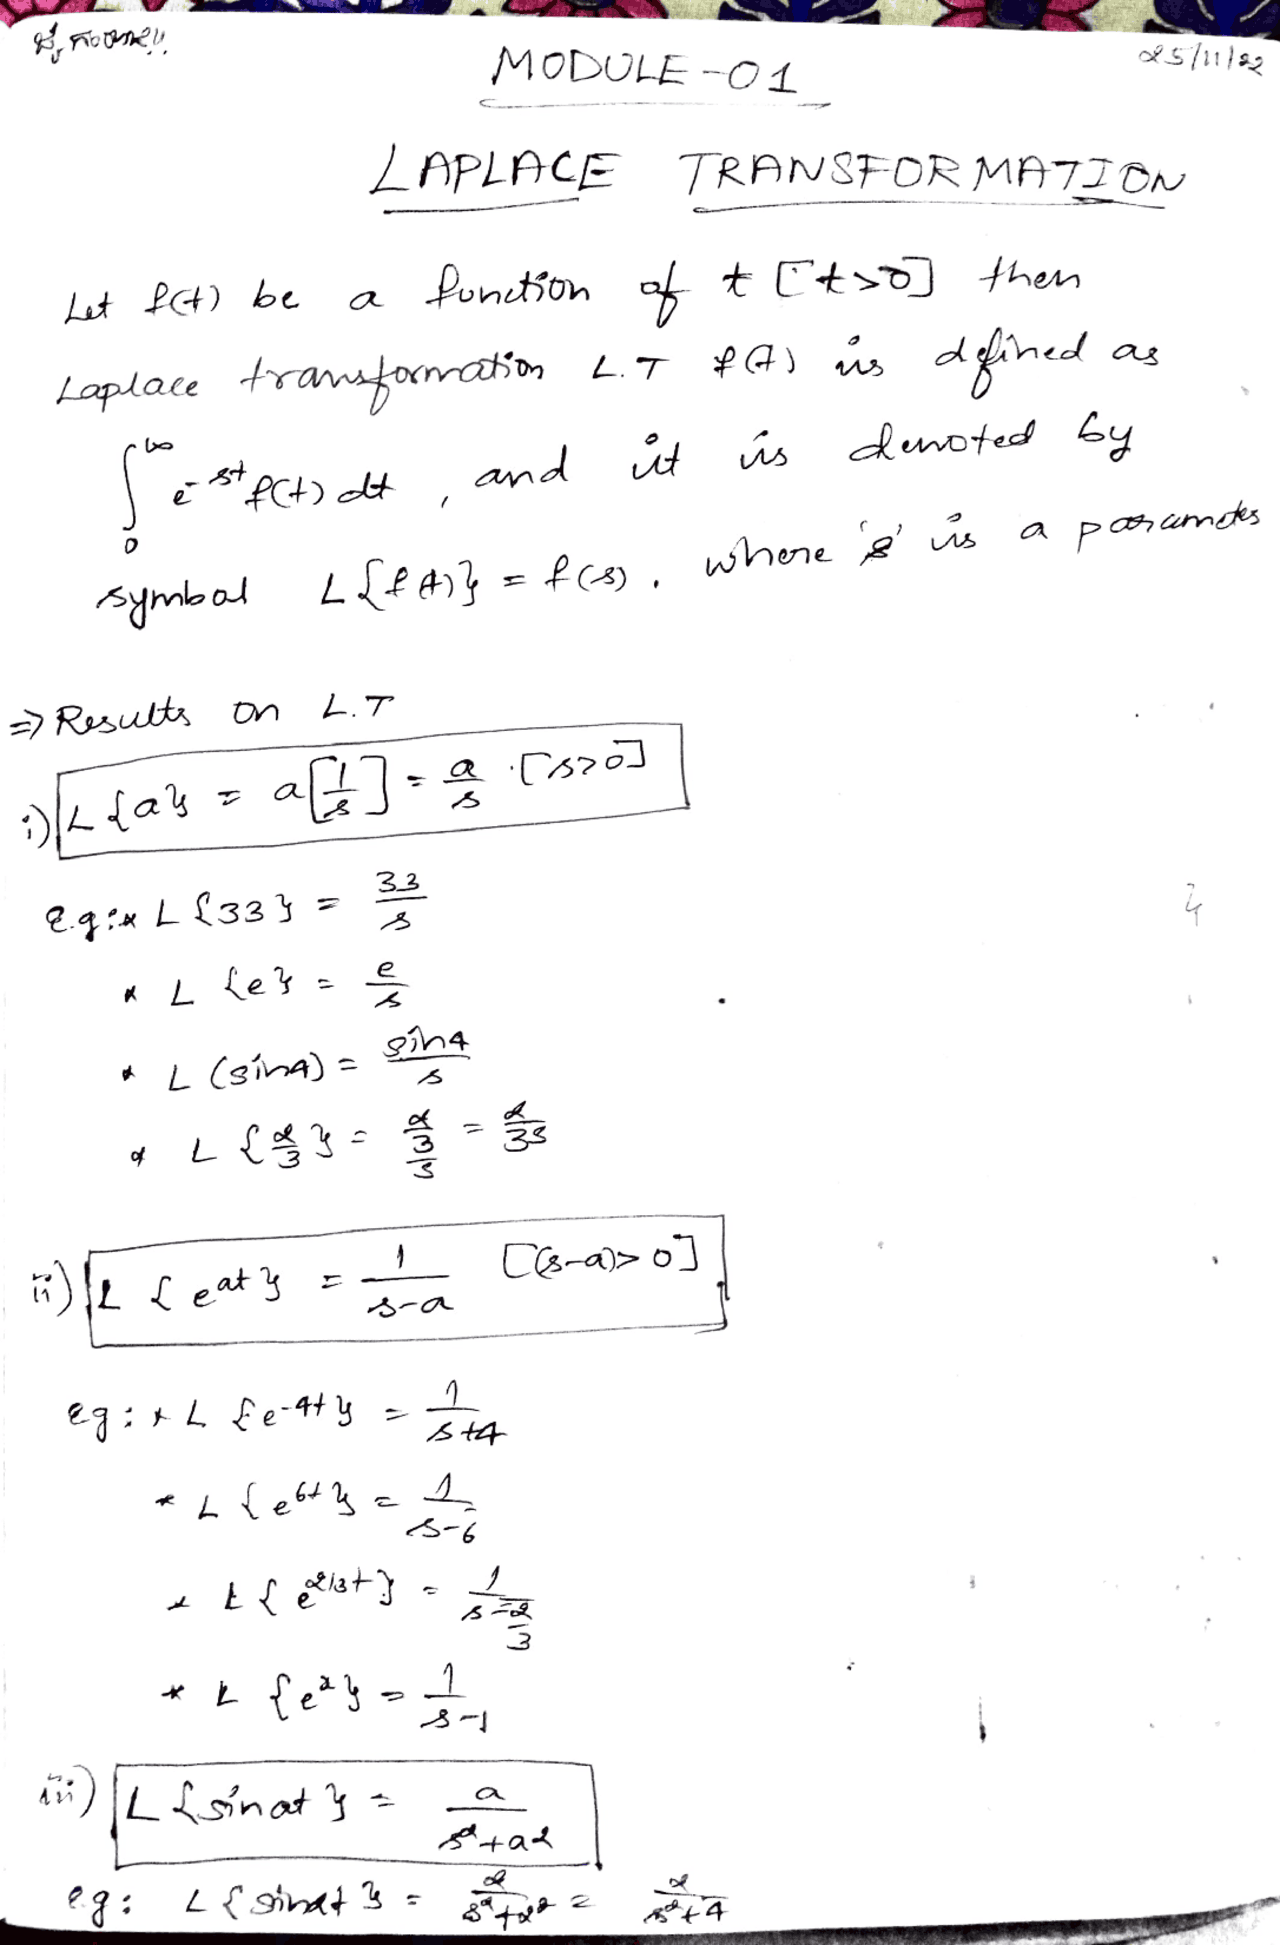 25/11/22
MODULE-01
LAPLACE TRANSFORMATION
Let f(t) be a function of t [t>0] then
Laplace transformation L.T f(t) is defined as
∫₀^∞ e^-st f(t) dt , and it is denoted by
symbol L{f(t)} = f(s). where 's' is a parameter
⇒ Results on L.T
i) L{a} = a[1/s] = a/s . [s>0]
e.g:* L{33} = 33/s
* L {e} = e/s
* L (sin4) = sin4/s
* L {2/3} = 2/3/s = 2/3s
ii) L {e^at} = 1/s-a [(s-a)>0]
eg: * L {e^-4t} = 1/s+4
* L {e^6t} = 1/s-6
* L {e^2/3t} = 1/s-2/3
* L {e^x} = 1/s-1
iii) L {sinat} = a/s²+a²
e.g: L {sin2t} = 2/s²+2² = 2/s²+4